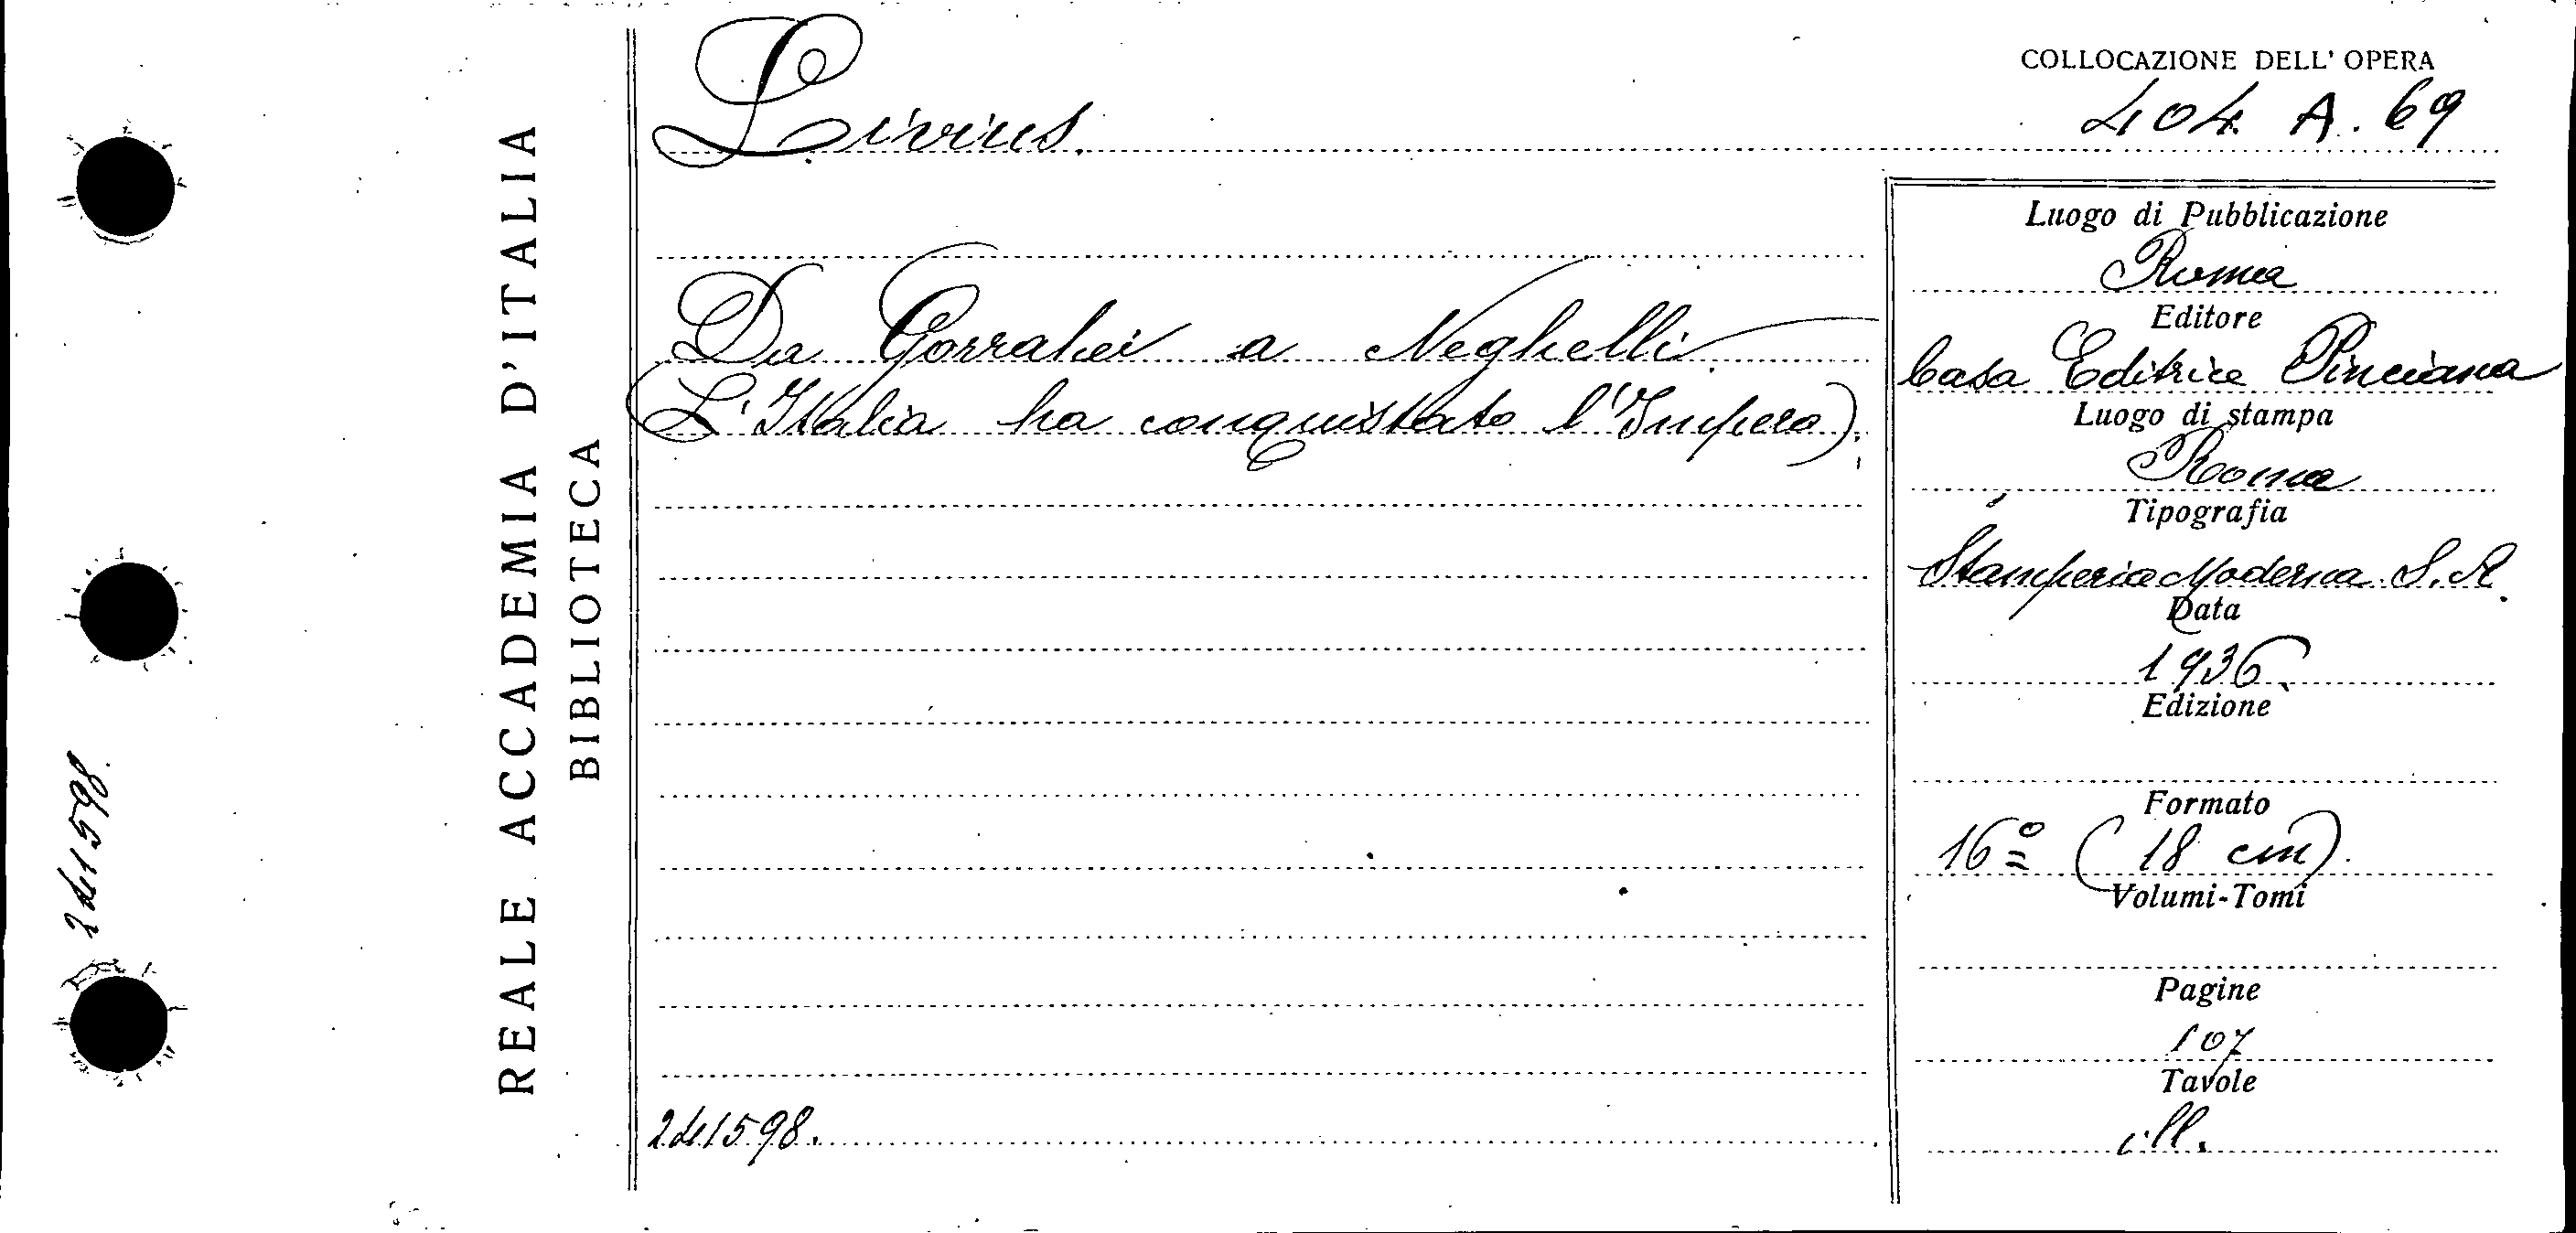 COLLOCAZIONE DELL' OPERA
Livius.
404 A. 69
REALE ACCADEMIA D'ITALIA
BIBLIOTECA
Da Gorrahei a Neghelli.
(L'Italia ha conquistato l'Impero).
241598.
241598.
Luogo di Pubblicazione
Roma
Editore
Casa Editrice Pinciana
Luogo di stampa
Roma
Tipografia
Stamperia Moderna S. A.
Data
1936.
Edizione
Formato
16º (18 cm).
Volumi-Tomi
Pagine
107
Tavole
ill.